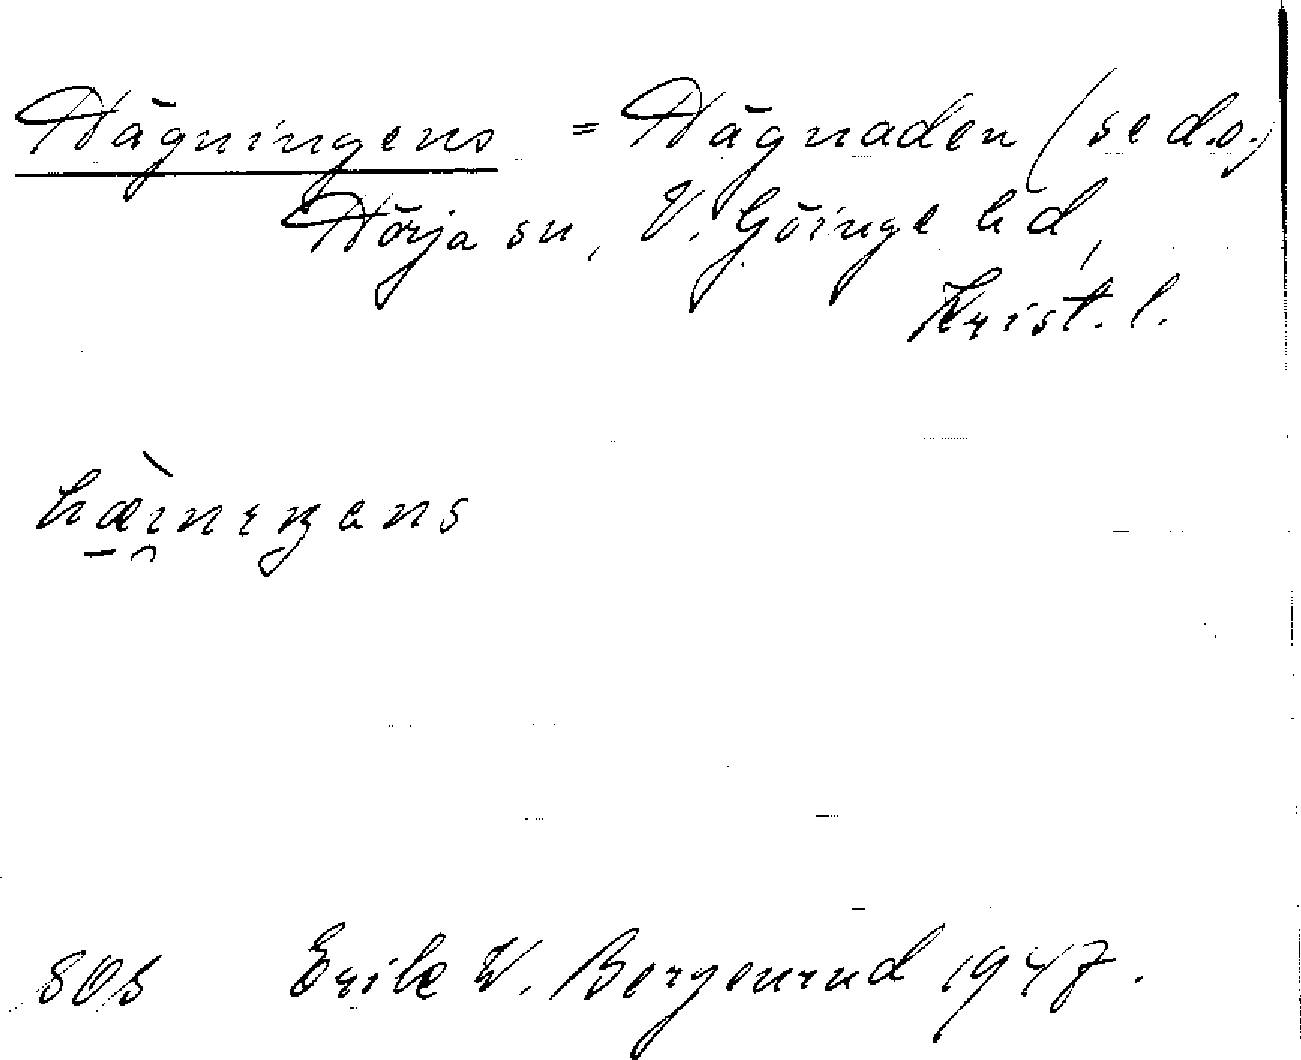 Hägningens = Hägnaden (se d.o.)
Hörja sn, V. Göinge hd,
Krist. l.
hæ̀inıŋans
SOS Erik W. Bergenrud 1947.